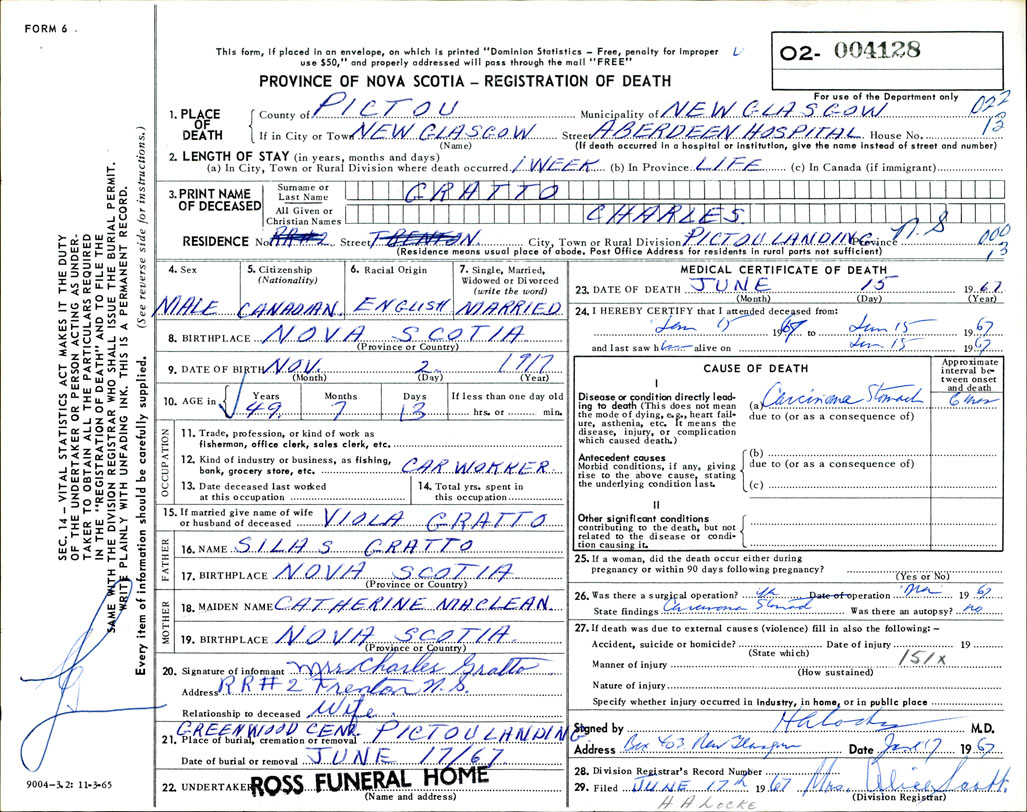 FORM 6
This form, if placed in an envelope, on which is printed "Dominion Statistics – Free, penalty for improper
use $50," and properly addressed will pass through the mail "FREE"
02- 004128
For use of the Department only
PROVINCE OF NOVA SCOTIA – REGISTRATION OF DEATH
1. PLACE OF DEATH
County of PICTOU Municipality of NEW GLASGOW 022
If in City or Town NEW GLASGOW Street ABERDEEN HOSPITAL House No. 13
(Name) (If death occurred in a hospital or institution, give the name instead of street and number)
2. LENGTH OF STAY (in years, months and days)
(a) In City, Town or Rural Division where death occurred 1 WEEK (b) In Province LIFE (c) In Canada (if immigrant)
3. PRINT NAME OF DECEASED
Surname or Last Name GRATTO
All Given or Christian Names CHARLES
RESIDENCE No. RR#2 Street TRENTON City, Town or Rural Division PICTOU LANDING Province N.S 000
(Residence means usual place of abode. Post Office Address for residents in rural parts not sufficient) 13
4. Sex MALE
5. Citizenship (Nationality) CANADIAN
6. Racial Origin ENGLISH
7. Single, Married, Widowed or Divorced (write the word) MARRIED
8. BIRTHPLACE NOVA SCOTIA
(Province or Country)
9. DATE OF BIRTH NOV. 2 1917
(Month) (Day) (Year)
10. AGE in Years 49 Months 7 Days 13 If less than one day old hrs. or min.
OCCUPATION
11. Trade, profession, or kind of work as
fisherman, office clerk, sales clerk, etc.
12. Kind of industry or business, as fishing,
bank, grocery store, etc. CAR WORKER
13. Date deceased last worked
at this occupation
14. Total yrs. spent in
this occupation
15. If married give name of wife
or husband of deceased VIOLA GRATTO
FATHER
16. NAME SILAS GRATTO
17. BIRTHPLACE NOVA SCOTIA
(Province or Country)
MOTHER
18. MAIDEN NAME CATHERINE MACLEAN
19. BIRTHPLACE NOVA SCOTIA
(Province or Country)
20. Signature of informant Mrs Charles Gratto
Address RR#2 Trenton N.S.
Relationship to deceased Wife
GREENWOOD CEM. PICTOU LANDING
21. Place of burial, cremation or removal
Date of burial or removal JUNE 17/67
22. UNDERTAKER ROSS FUNERAL HOME
(Name and address)
MEDICAL CERTIFICATE OF DEATH
23. DATE OF DEATH JUNE 15 1967
(Month) (Day) (Year)
24. I HEREBY CERTIFY that I attended deceased from:
15 1967 to 15 1967
and last saw h alive on 15 1967
CAUSE OF DEATH
Approximate interval between onset and death
I
Disease or condition directly leading to death (This does not mean the mode of dying, e.g., heart failure, asthenia, etc. It means the disease, injury, or complication which caused death.)
(a) Carcinoma Stomach 6 mos
due to (or as a consequence of)
Antecedent causes
Morbid conditions, if any, giving rise to the above cause, stating the underlying condition last.
(b)
due to (or as a consequence of)
(c)
II
Other significant conditions
contributing to the death, but not related to the disease or condition causing it.
25. If a woman, did the death occur either during
pregnancy or within 90 days following pregnancy?
(Yes or No)
26. Was there a surgical operation? Date of operation Mar 1967
State findings Carcinoma Was there an autopsy? no
27. If death was due to external causes (violence) fill in also the following: –
Accident, suicide or homicide? Date of injury 19
(State which) 151x
Manner of injury
(How sustained)
Nature of injury
Specify whether injury occurred in industry, in home, or in public place
Signed by M.D.
Address Box 403 New Glasgow Date 17 1967
28. Division Registrar's Record Number
29. Filed JUNE 17th 1967 Mrs. Alice Scott
(Division Registrar)
H A LOCKE
SEC. 14 – VITAL STATISTICS ACT MAKES IT THE DUTY
OF THE UNDERTAKER OR PERSON ACTING AS UNDER-
TAKER TO OBTAIN ALL THE PARTICULARS REQUIRED
IN THE "REGISTRATION OF DEATH" AND TO FILE THE
SAME WITH THE DIVISION REGISTRAR WHO SHALL ISSUE THE BURIAL PERMIT.
WRITE PLAINLY WITH UNFADING INK. THIS IS A PERMANENT RECORD.
Every item of information should be carefully supplied. (See reverse side for instructions.)
9004-3.2: 11-3-65